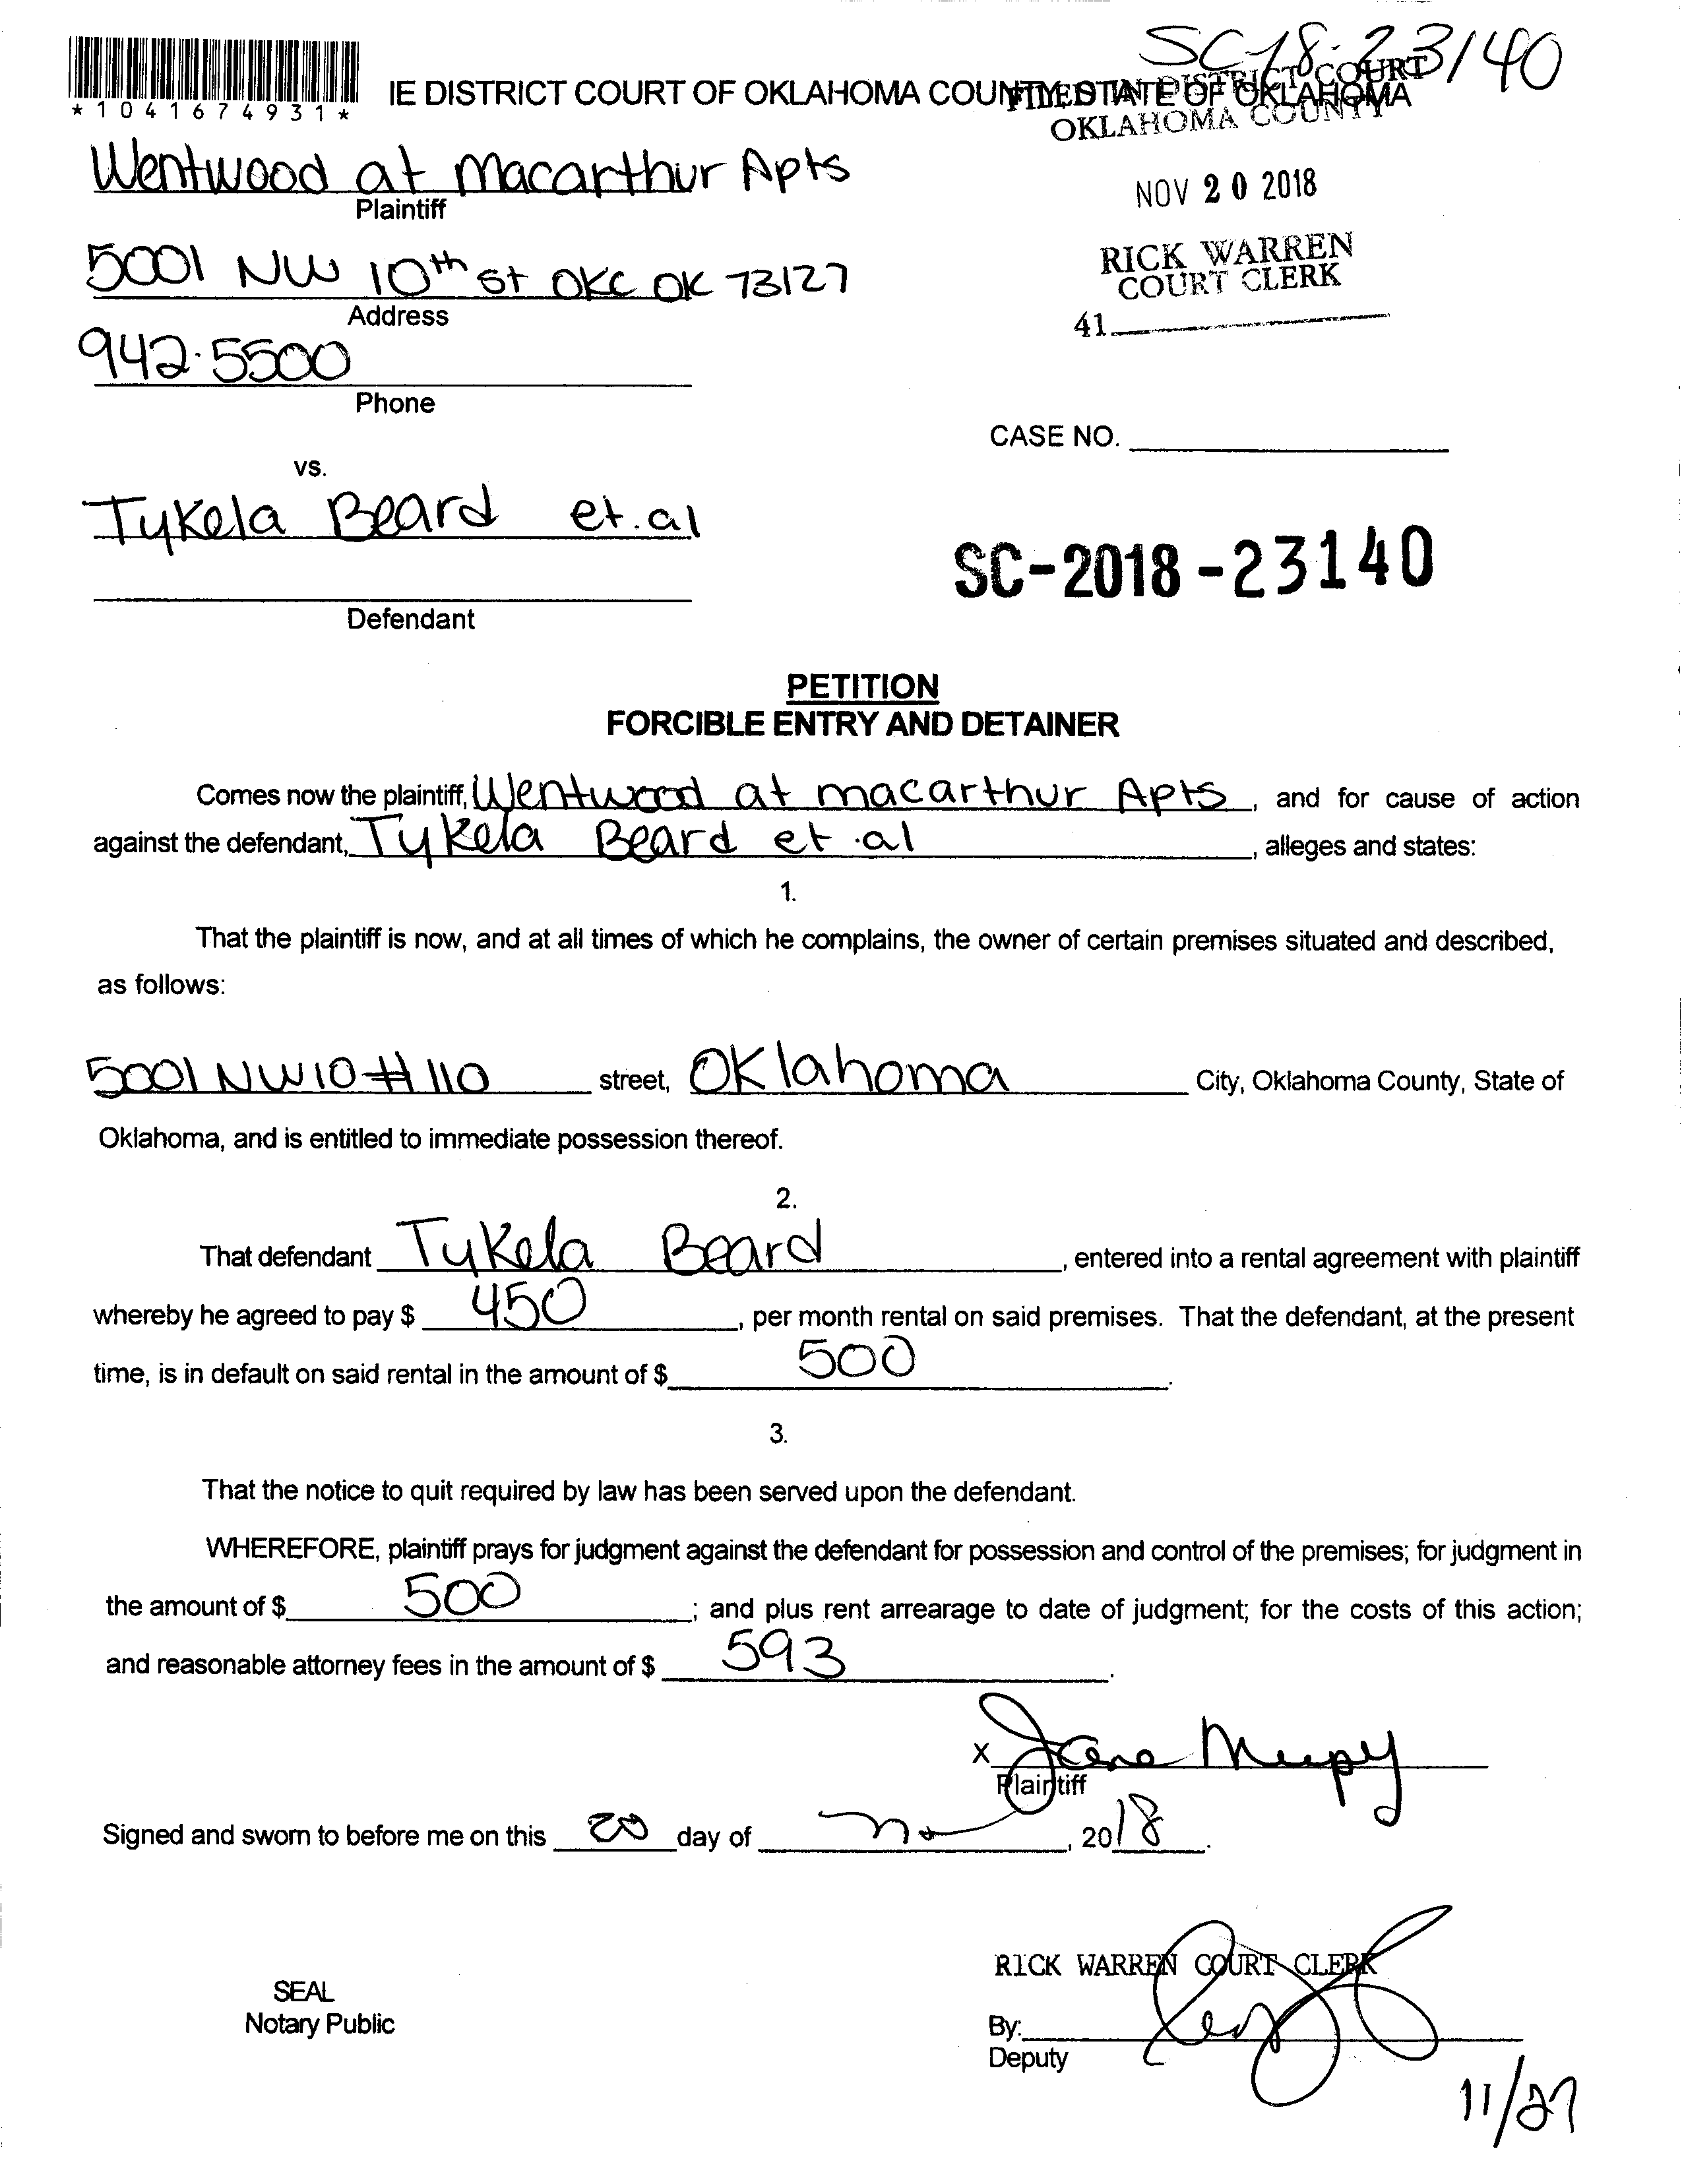 SC-18-23140
*1041674931*
IE DISTRICT COURT OF OKLAHOMA COUNTY, STATE OF OKLAHOMA
FILED IN DISTRICT COURT
OKLAHOMA COUNTY
Wentwood at Macarthur Apts
Plaintiff
NOV 20 2018
5001 NW 10th St OKC OK 73127
Address
RICK WARREN
COURT CLERK
41
942-5500
Phone
CASE NO.
vs.
Tykela Beard et.al
SC-2018-23140
Defendant
PETITION
FORCIBLE ENTRY AND DETAINER
Comes now the plaintiff, Wentwood at macarthur Apts, and for cause of action
against the defendant, Tykela Beard et.al, alleges and states:
1.
That the plaintiff is now, and at all times of which he complains, the owner of certain premises situated and described,
as follows:
5001 NW 10 # 110 street, Oklahoma City, Oklahoma County, State of
Oklahoma, and is entitled to immediate possession thereof.
2.
That defendant Tykela Beard, entered into a rental agreement with plaintiff
whereby he agreed to pay $ 450, per month rental on said premises. That the defendant, at the present
time, is in default on said rental in the amount of $ 500.
3.
That the notice to quit required by law has been served upon the defendant.
WHEREFORE, plaintiff prays for judgment against the defendant for possession and control of the premises; for judgment in
the amount of $ 500; and plus rent arrearage to date of judgment; for the costs of this action;
and reasonable attorney fees in the amount of $ 593.
X
Plaintiff
Signed and sworn to before me on this 20 day of Nov, 2018.
RICK WARREN COURT CLERK
SEAL
Notary Public
By:
Deputy
11/27